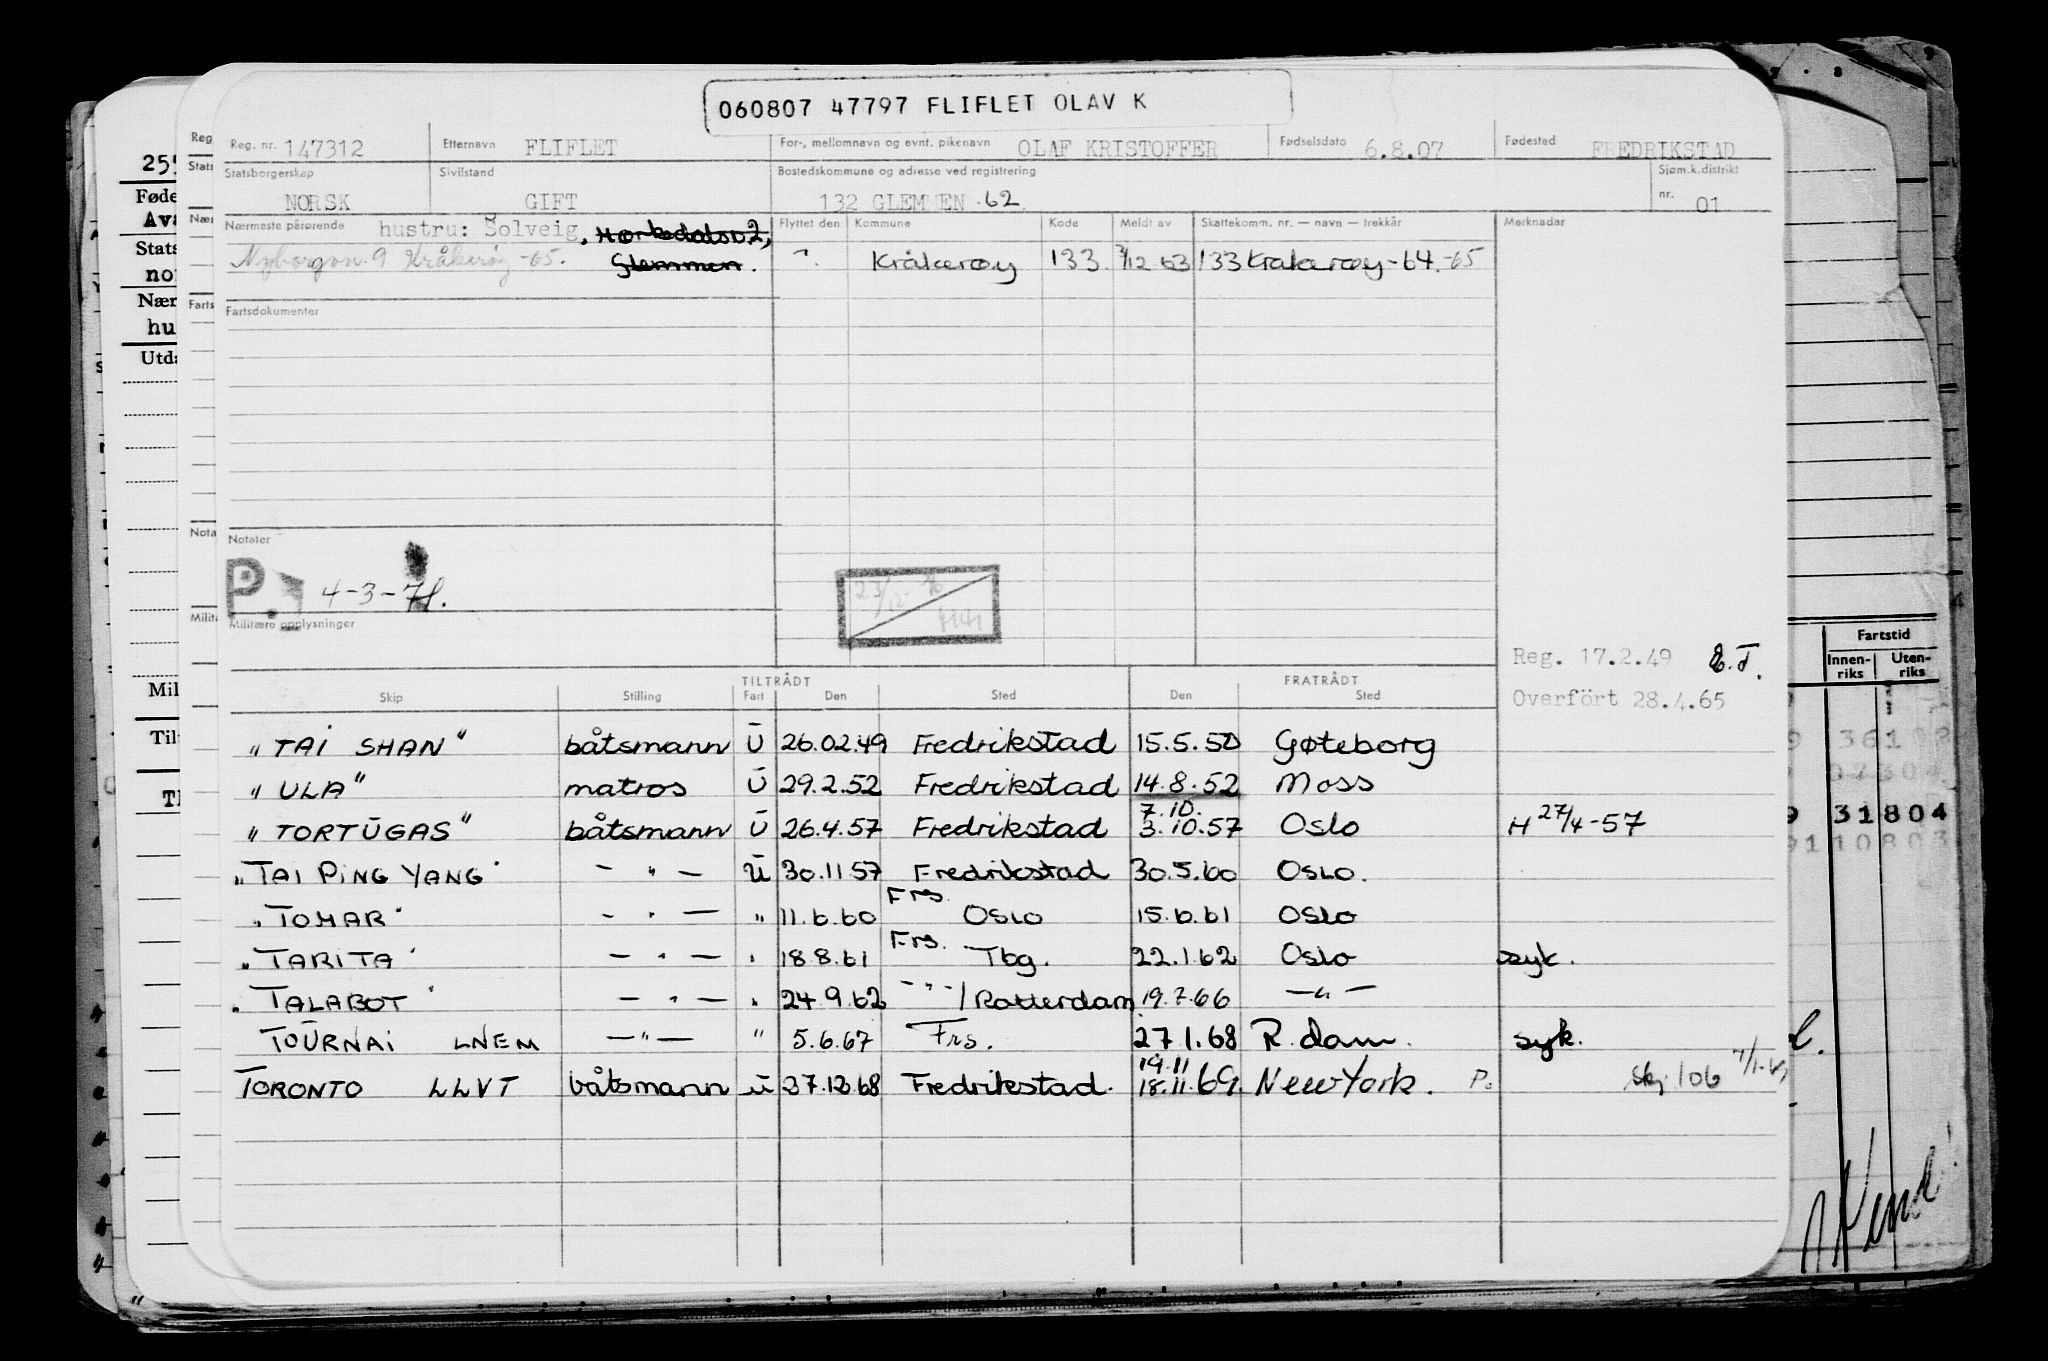 060807 47797 FLIFLET OLAV K
Reg. nr. 147312 Etternavn FLIFLET For-, mellomnavn og evnt. pikenavn OLAF KRISTOFFER Fødselsdato 6.8.07 Fødested FREDRIKSTAD
Statsborgerskap NORSK Sivilstand GIFT Bostedskommune og adresse ved registrering 132 GLEMMEN 62 Sjøm.k.distrikt nr. 01
Nærmeste pårørende hustru: Solveig, Flyttet den Kommune Kode Meldt av Skattekomm. nr. — navn — trekkår Merknader
9 Kråkerøy -65. Glemmen. Kråkerøy 133 133 Kråkerøy -64. -65
Fartsdokumenter
Notater
P. 4-3-71.
23/12
Militære opplysninger
Reg. 17.2.49 E.T.
Overført 28.4.65
TILTRÅDT FRATRÅDT
Skip Stilling Fart Den Sted Den Sted
"TAI SHAN" båtsmann U 26.02.49 Fredrikstad 15.5.50 Gøteborg
"ULA" matros U 29.2.52 Fredrikstad 14.8.52 Moss
7.10.
"TORTUGAS" båtsmann U 26.4.57 Fredrikstad 3.10.57 Oslo H 27/4-57
"TAI PING YANG" — " — U 30.11.57 Fredrikstad 30.5.60 Oslo.
Frs.
"TOMAR" — " — " 11.6.60 Oslo 15.6.61 Oslo
Frs.
"TARITA" — " — " 18.8.61 Tbg. 22.1.62 Oslo syk.
"TALABOT" — " — " 24.9.62 — " — / Rotterdam 19.7.66 — " —
TOURNAI LNEM — " — " 5.6.67 Frs. 27.1.68 R.dam. syk.
19.11
TORONTO LLVT båtsmann U 27.12.68 Fredrikstad. 18.11.69. New York. P. Skj 106
Reg
Stats
Nær
Farts
Nota
Milit
Føde
Stats
Nær
hu
Utda
Mil
Til
Fartstid
Innen- Uten-
riks riks
31804